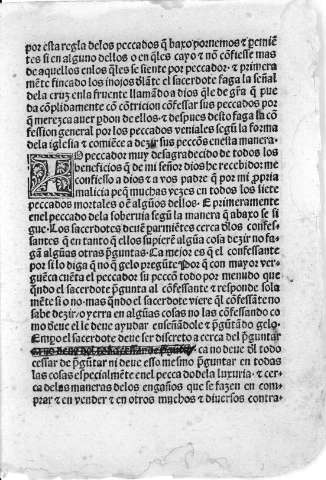 por esta regla delos peccados q̃ baxo pornemos ⁊ p̃eniẽ
tes si en alguno dellos o en q̃les cayo ⁊ nõ cõfiesse mas
de aquellos enlos q̃les se siente por peccador· ⁊ primera
mẽte fincado los inojos dlãte el sacerdote faga la señal
dela cruz enla fruente llamãdo a dios q̃le de gr̃a q̃ pue
da cõplidamente cõ cõtricion cõfessar sus peccados por
q̃ merezca auer p̃don de ellos· ⁊ despues desto faga la cõ
fession general por los peccados veniales segũ la forma
dela iglesia ⁊ comiẽce a dezir sus pecc̃os enesta manera·
O peccador muy desagradecido de todos los
beneficios q̃ de mi señor dios he recebido me
confiesso a dios ⁊ a vos padre q̃ por mi p̃pria
malicia peq̃ muchas vezes en todos los siete
peccados mortales o ẽ algũos dellos· E primeramente
enel peccado dela soberuia segũ la manera q̃ abaxo se si
gue· Los sacerdotes deuẽ parmiẽtes cerca dlos confes-
santes q̃ en tanto q̃ ellos supierẽ algũa cosa dezir no fa-
gã algũas otras p̃gũtas· Ca mejor es q̃ el confessante
por si lo diga q̃ no q̃ gelo pregũtẽ· Por q̃ con mayor ver-
guẽça cuẽta el peccador su pecc̃o todo por menudo que
q̃ndo el sacerdote p̃gunta al cõfessante ⁊ responde sola
mẽte si o no· mas q̃ndo el sacerdote viere q̃l cõfessãte no
sabe dezir· o yerra en algũas cosas no las cõfessando co
mo deue el le deue ayudar enseñãdole ⁊ p̃gũtãdo gelo·
Empo el sacerdote deue ser discreto a cerca del p̃guntar
ca no deue dl todo
cessar de p̃gũtar ni deue esso mesmo p̃guntar en todas
las cosas especialmẽte enel pecca do dela luxuria· ⁊ cer-
ca delas maneras delos engaños que se fazen en com-
prar ⁊ en vender ⁊ en otros muchos ⁊ diuersos contra-